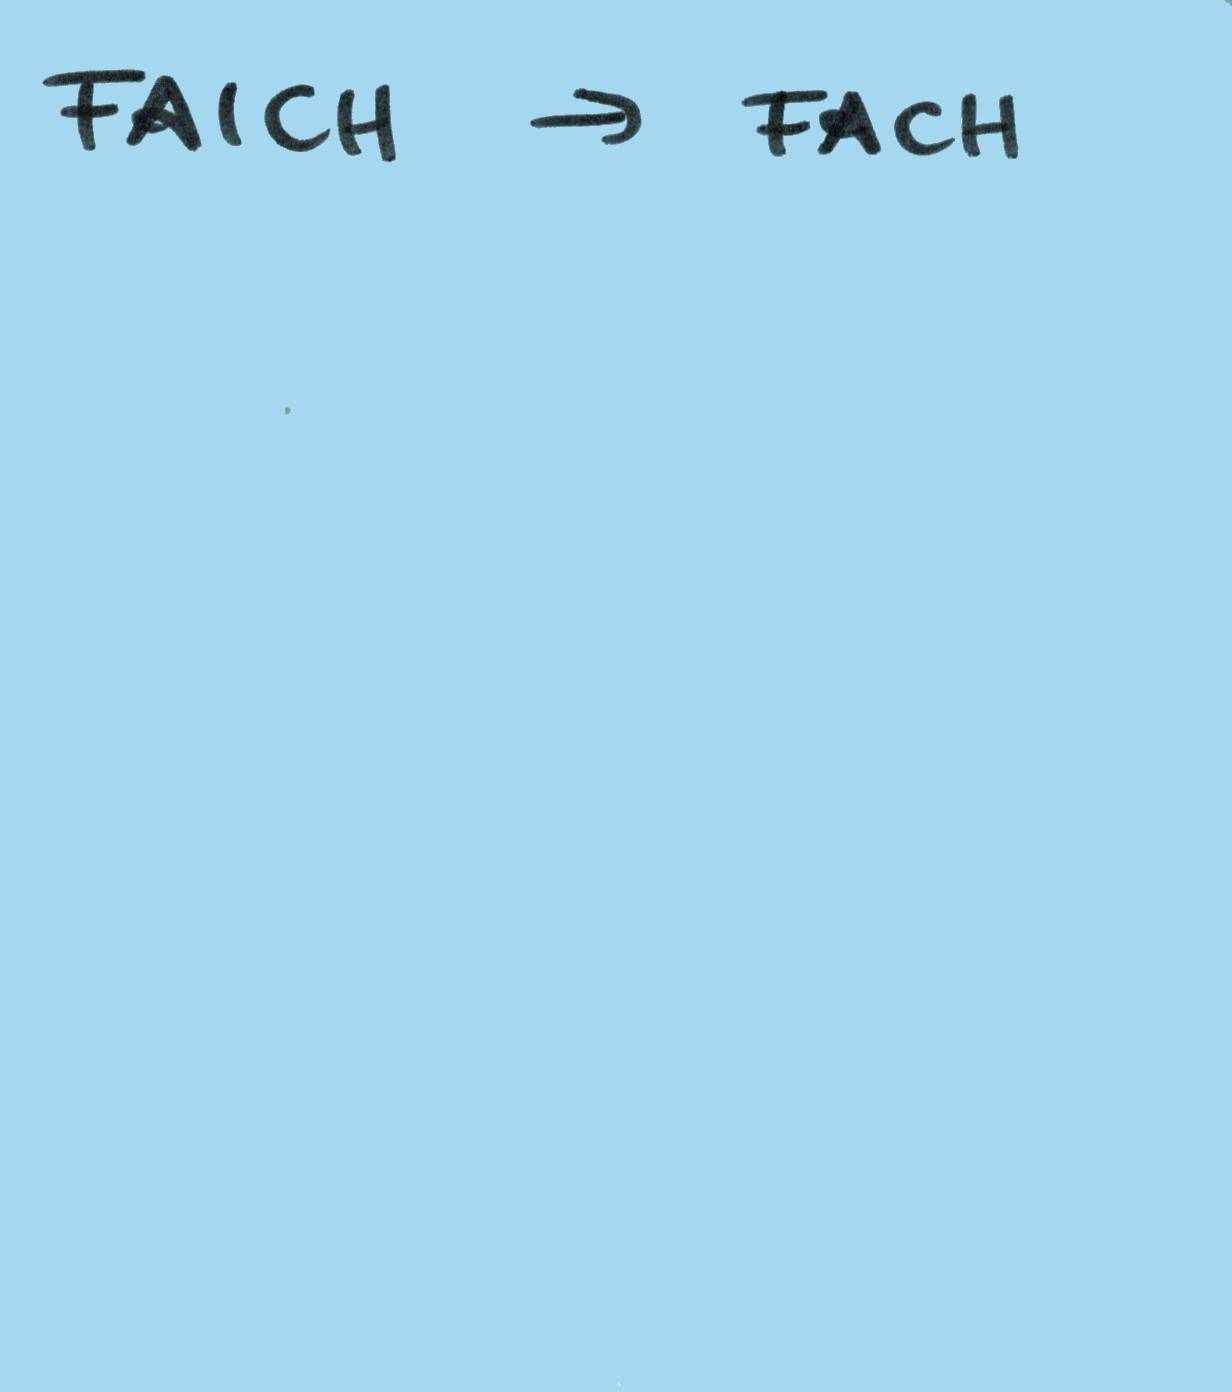 FAICH → FACH